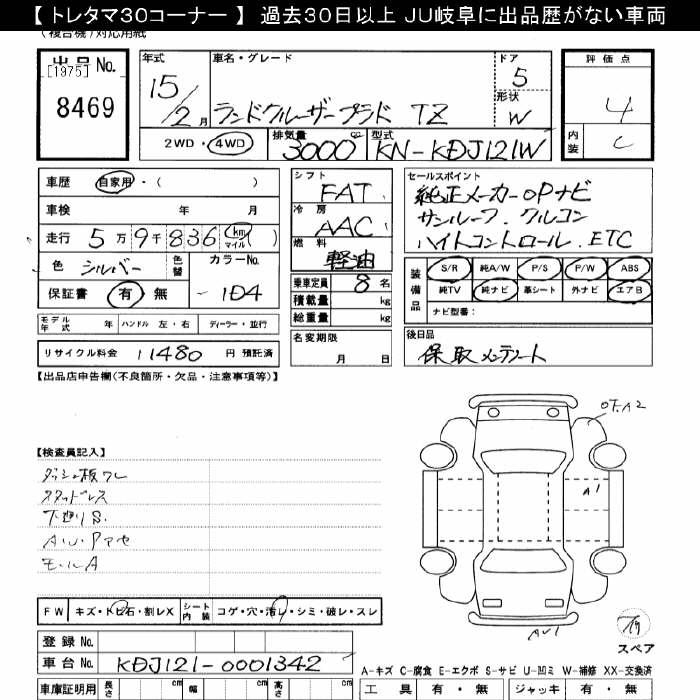 【 トレタマ30コーナー 】 過去30日以上 JU岐阜に出品歴がない車両
(複合機)対応用紙
出品No.
[1975]
8469
年式 車名・グレード ドア
15/2月 ランドクルーザープラド TZ 5
形状
W
2WD・4WD 排気量 3000 cc 型式 KN-KDJ121W
評価点
4
内装 C
車歴 自家用・( )
車検 年 月
走行 5万9千836 km マイル ( )
色 シルバー 色替 カラーNo.
1D4
保証書 有・無
シフト
FAT
冷房
AAC
燃料
軽油
乗車定員 8 名
積載量 kg
総重量 kg
セールスポイント
純正メーカーOPナビ
サンルーフ.クルコン
ハイトコントロール.ETC
装備品 S/R 純A/W P/S P/W ABS
純TV 純ナビ 革シート 外ナビ エアB
ナビ型番:
モデル年式 年 ハンドル 左・右 ディーラー・並行
名変期限
月 日
後日品
保取メンテノート
リサイクル料金 11480 円 預託済
【出品店申告欄(不良箇所・欠品・注意事項等)】
【検査員記入】
ダッシュ板ワレ
スタッドレス
下廻りS.
モールA
A1
AU1
スペア
FW キズ・トビ石・割レX シート内装 コゲ・穴・汚レ・シミ・破レ・スレ
登録 No.
車台 No. KDJ121-0001342
A-キズ C-腐食 E-エクボ S-サビ U-凹ミ W-補修 XX-交換済
車庫証明用 長さ cm 幅 cm 高さ cm
工具 有・無 ジャッキ 有・無